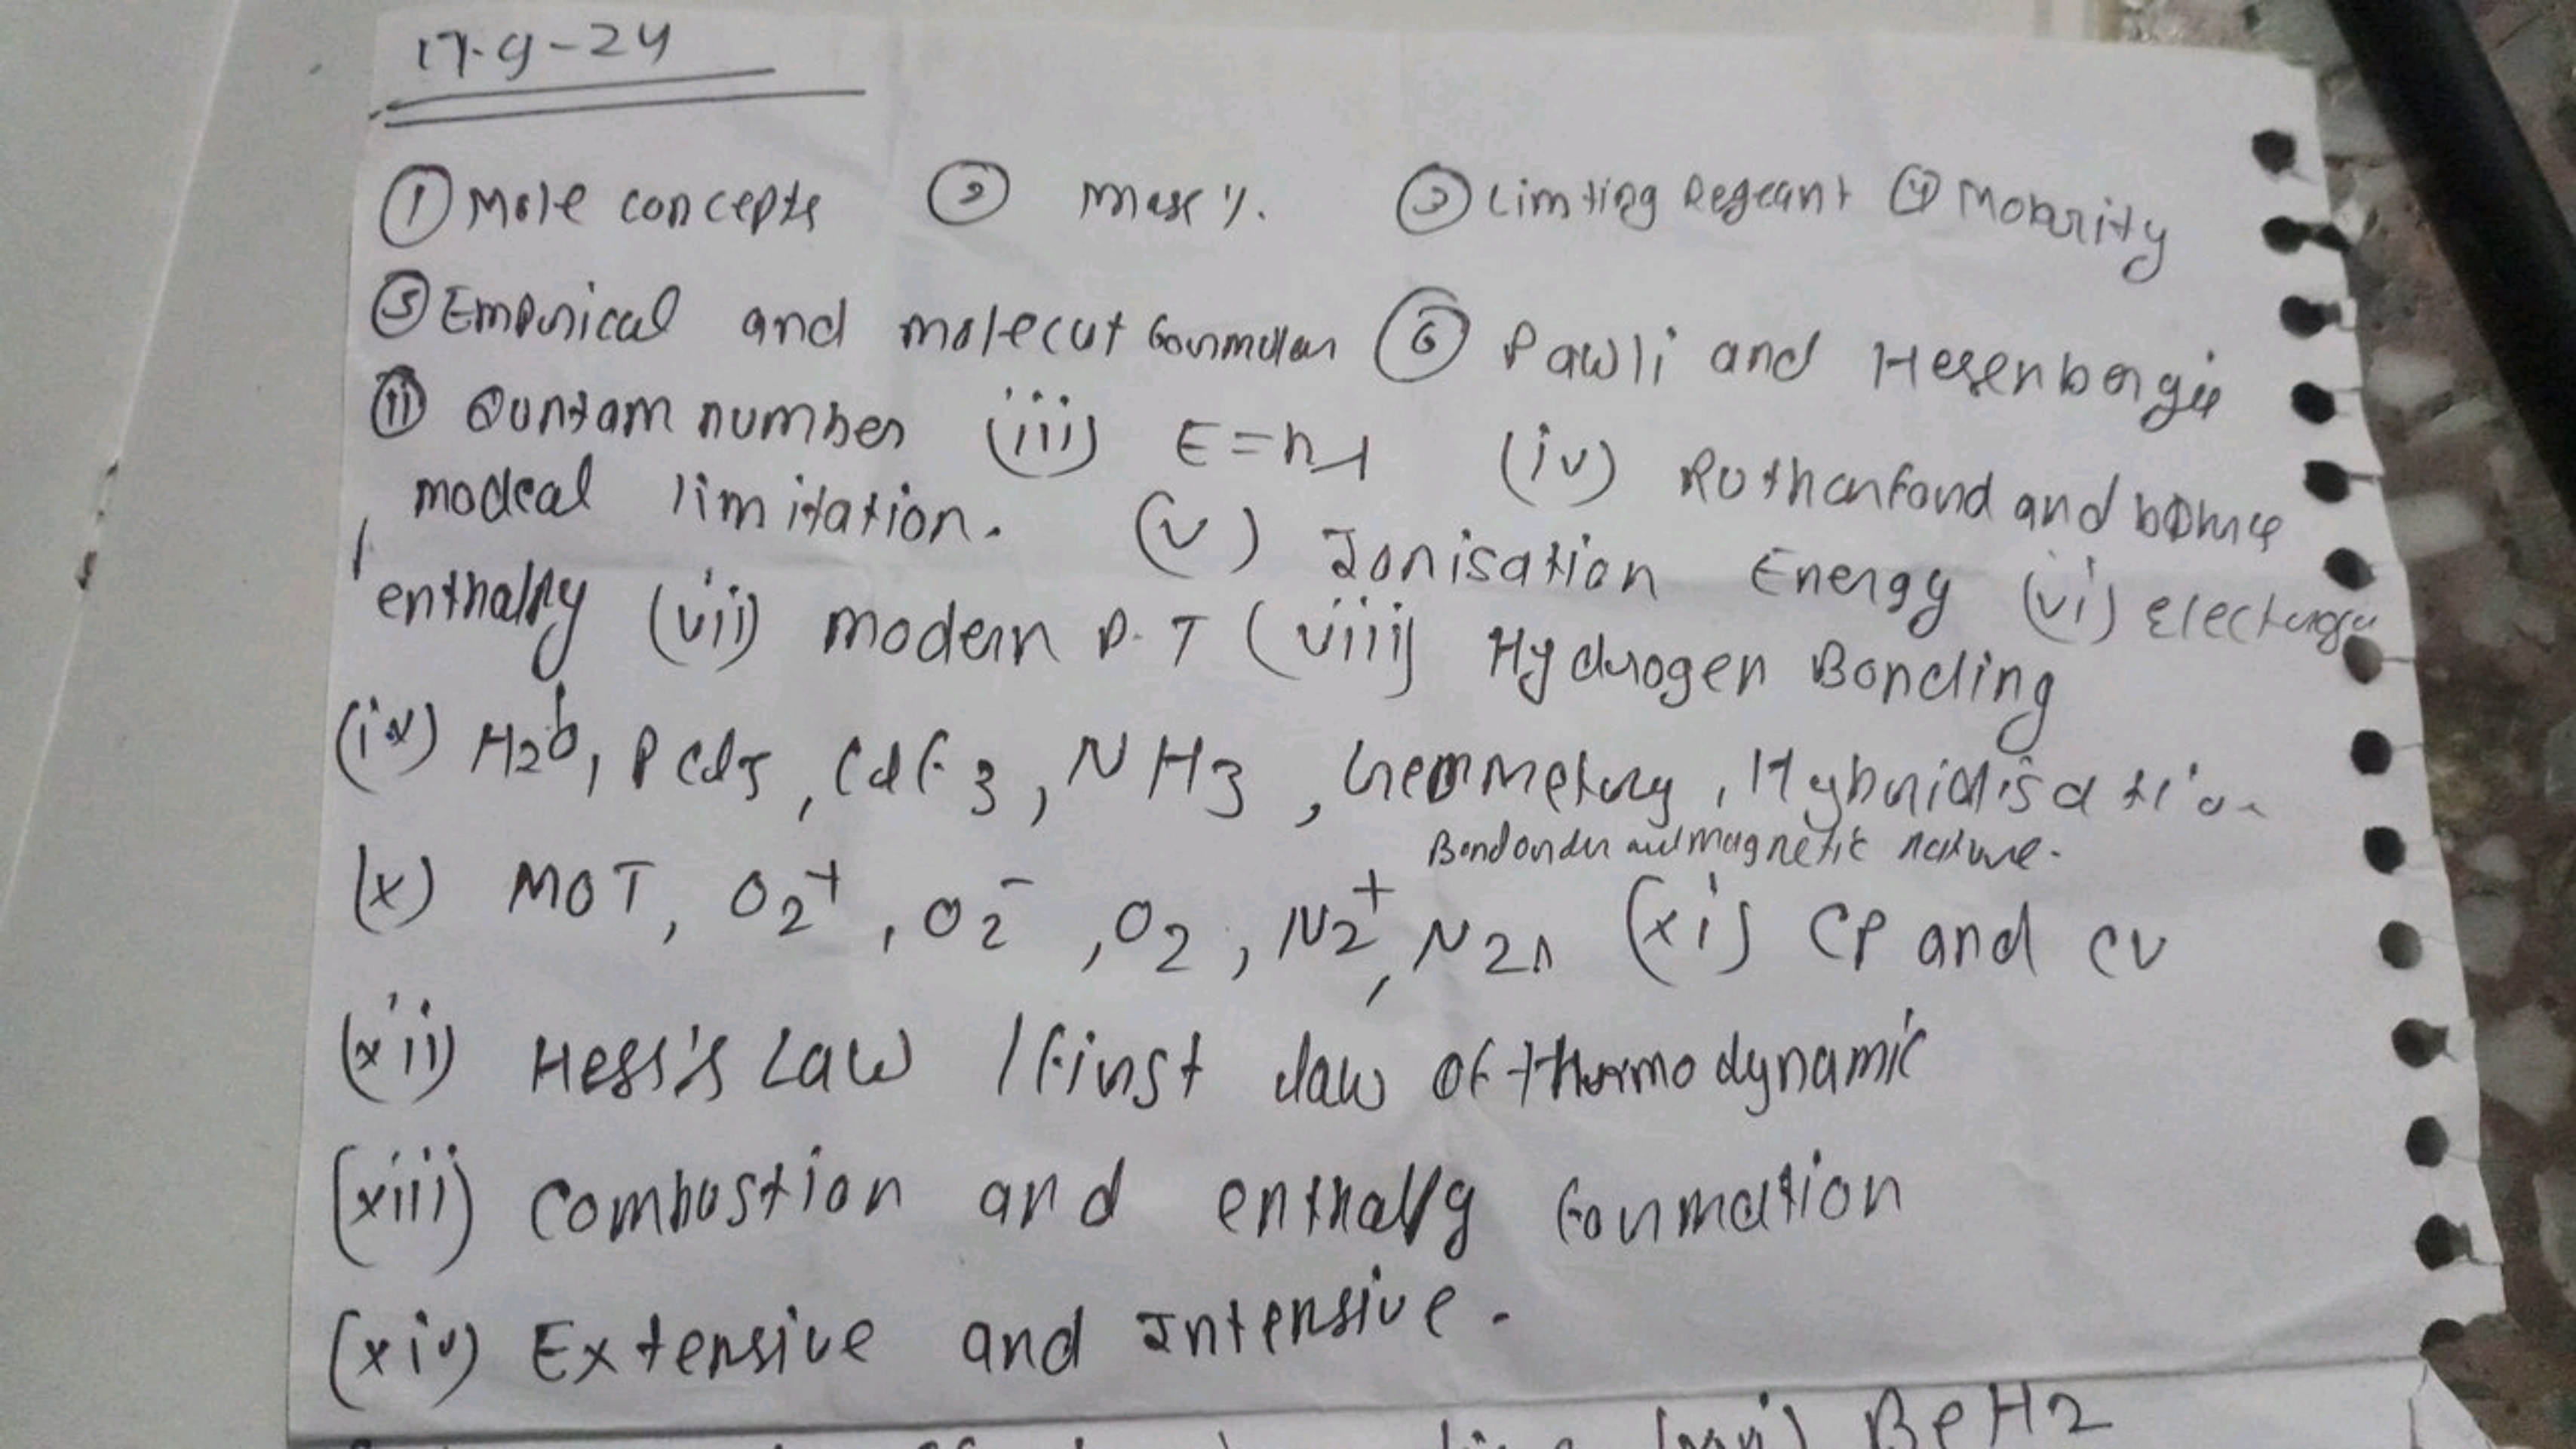 17-9-24
① Mole concepts ② Mass %. ③ Limting Regeant ④ Molarity
⑤ Empirical and molecul formular ⑥ Pawli and Hesenbergie
(ii) Quntam number (iii) E=h (iv) Rutherford and bohre
modeal limitation. (v) Ionisation Energy (vi) electronge
enthalpy (vii) modern P.T (viii) Hydrogen Bonding
(ix) H2O, PCl5, ClF3, NH3, Geommetry, Hybridisation
Bond order and magnetic nature.
(x) MOT, O2+, O2-, O2, N2+, N2, (xi) CP and CV
(xii) Hess's Law / First law of thermodynamic
(xiii) Combustion and enthalpy formation
(xiv) Extensive and Intensive.
BeH2